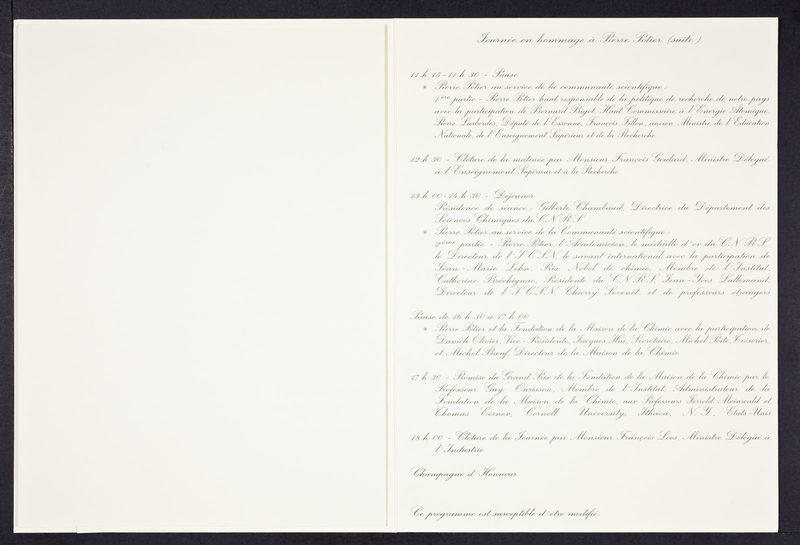 Journée en hommage à Pierre Potier (suite)
11 h 15 - 11 h 30 - Pause
* Pierre Potier au service de la communauté scientifique :
1ère partie - Pierre Potier haut responsable de la politique de recherche de notre pays
avec la participation de Bernard Bigot, Haut Commissaire à l'Energie Atomique,
Pierre Lasbordes, Député de l'Essonne, François Fillon, ancien Ministre de l'Education
Nationale, de l'Enseignement Supérieur et de la Recherche
12 h 30 - Clôture de la matinée par Monsieur François Goulard, Ministre Délégué
à l'Enseignement Supérieur et à la Recherche
13 h 00 - 14 h 30 - Déjeuner
Présidence de séance : Gilberte Chambaud, Directrice du Département des
Sciences Chimiques du C.N.R.S
* Pierre Potier au service de la Communauté scientifique :
2ème partie - Pierre Potier, l'Académicien, le médaillé d'or du C.N.R.S,
le Directeur de l'I.C.S.N, le savant international avec la participation de
Jean-Marie Lehn, Prix Nobel de chimie, Membre de l'Institut,
Catherine Bréchignac, Présidente du C.N.R.S, Jean-Yves Lallemand,
Directeur de l'I.C.S.N, Thierry Sevenet, et de professeurs étrangers
Pause de 16 h 30 à 17 h 00
* Pierre Potier et la Fondation de la Maison de la Chimie avec la participation de
Danièle Olivier, Vice-Présidente, Jacques Hui, Secrétaire, Michel Poite, Trésorier,
et Michel Bœuf, Directeur de la Maison de la Chimie
17 h 30 - Remise du Grand Prix de la Fondation de la Maison de la Chimie par le
Professeur Guy Ourisson, Membre de l'Institut, Administrateur de la
Fondation de la Maison de la Chimie, aux Professeurs Jerrold Meinwald et
Thomas Eisner, Cornell University, Ithaca, N.Y. Etats-Unis
18 h 00 - Clôture de la Journée par Monsieur François Loos, Ministre Délégué à
l'Industrie
Champagne d'Honneur
Ce programme est susceptible d'être modifié.